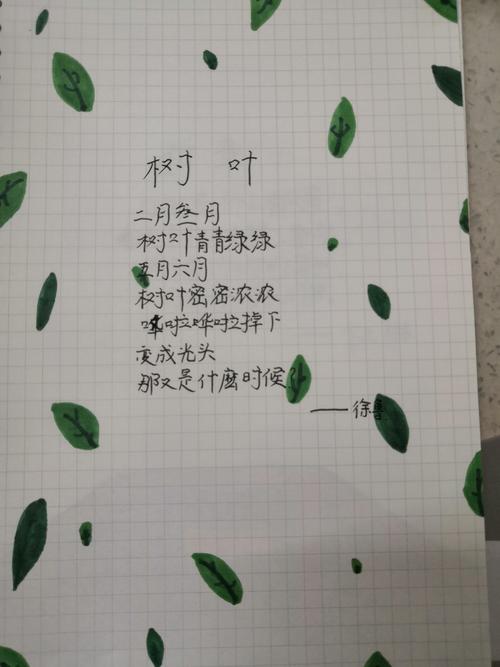 树 叶
二月叁月
树叶青青绿绿
五月六月
树叶密密浓浓
哗啦哗啦掉下
变成光头
那又是什麼时候?
——徐鲁